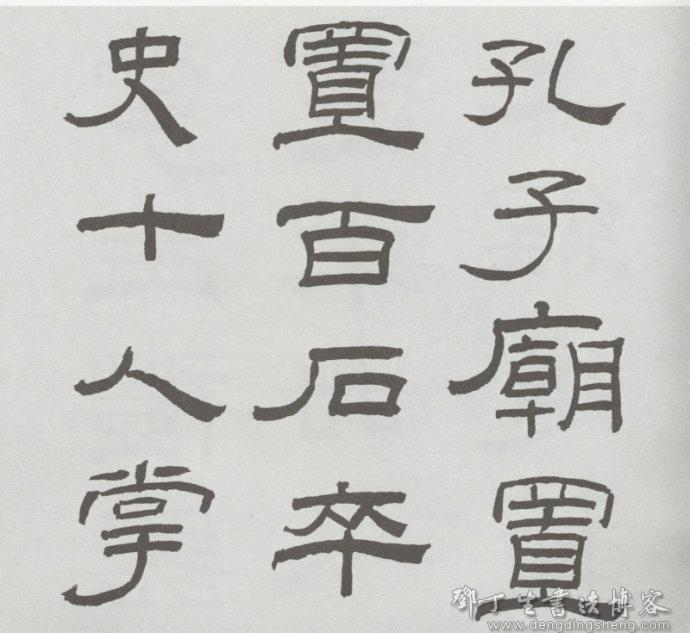 孔子廟置
置百石卒
史十人掌
鄧丁生書法博客
www.dengdingsheng.com